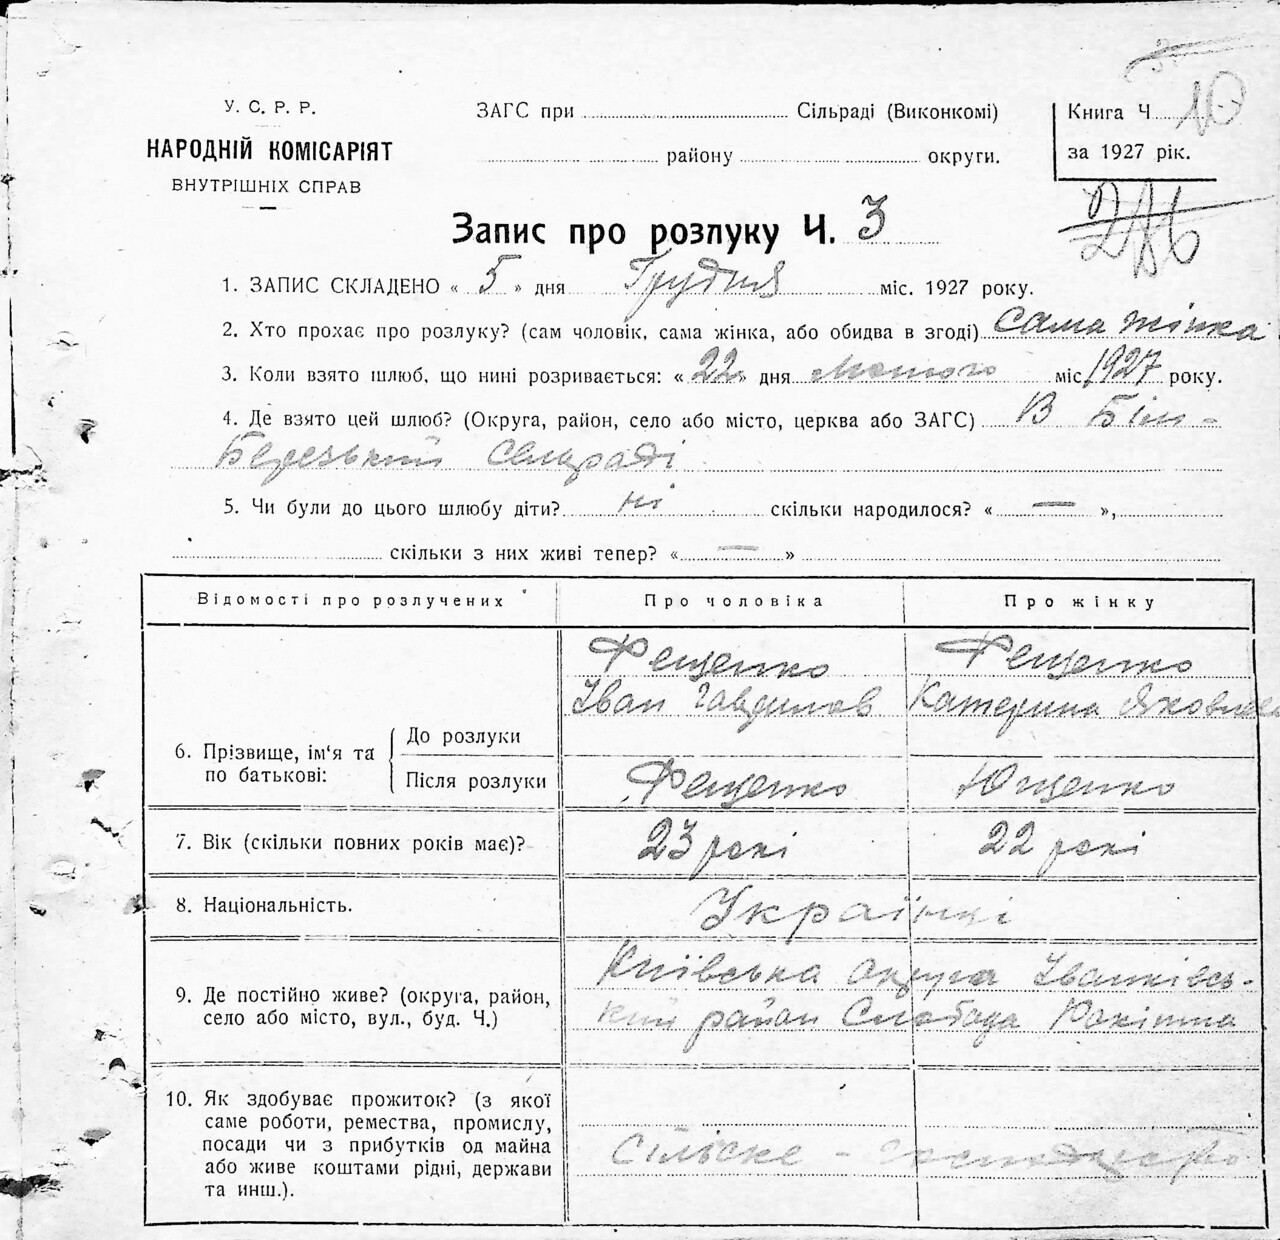 У. С. Р. Р.
НАРОДНІЙ КОМІСАРІЯТ
ВНУТРІШНІХ СПРАВ
ЗАГС при Сільраді (Виконкомі)
району округи.
Книга Ч 10
за 1927 рік.
Запис про розлуку Ч. 3
1. ЗАПИС СКЛАДЕНО « 5 » дня Грудня міс. 1927 року.
2. Хто прохає про розлуку? (сам чоловік, сама жінка, або обидва в згоді) сама жінка
3. Коли взято шлюб, що нині розривається: « 22 » дня Лютого міс. 1927 року.
4. Де взято цей шлюб? (Округа, район, село або місто, церква або ЗАГС) В Біло-
Березький Сельраді
5. Чи були до цього шлюбу діти? ні скільки народилося? « — »,
скільки з них живі тепер? « — »
Відомості про розлучених Про чоловіка Про жінку
Фещенко Фещенко
Іван Гаврилов Катерина Яковлева
6. Прізвище, ім'я та по батькові: До розлуки
Після розлуки Фещенко Ющенко
7. Вік (скільки повних років має)? 23 рокі 22 рокі
8. Національність. Українці
9. Де постійно живе? (округа, район, село або місто, вул., буд. Ч.) Київська округа Іванківсь-
кий район Слобода Кохівка
10. Як здобуває прожиток? (з якої
саме роботи, ремества, промислу,
посади чи з прибутків од майна
або живе коштами рідні, держави
та инш.).
Сільске - господарство